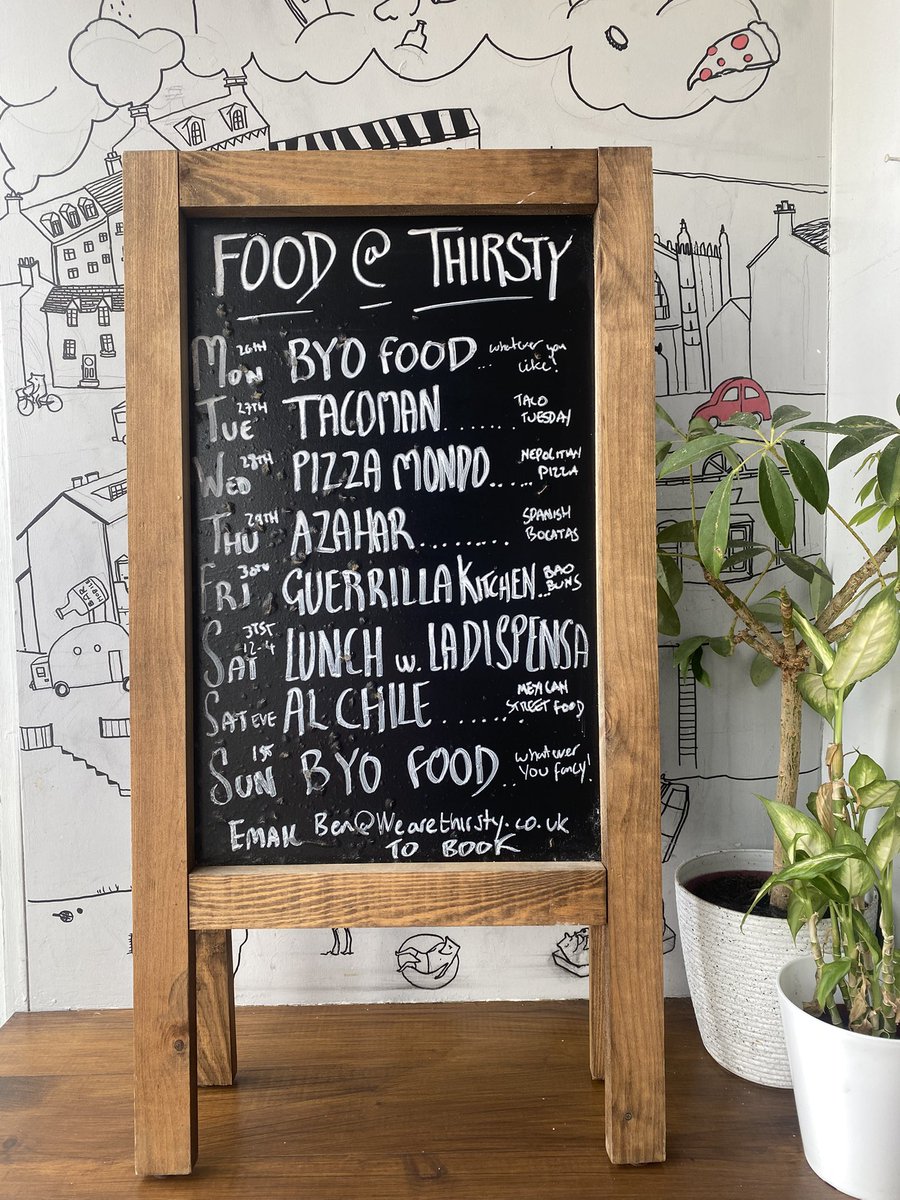 FOOD @ THIRSTY
MON 26TH BYO FOOD ... whatever you like!
TUE 27TH TACOMAN ....... TACO TUESDAY
WED 28TH PIZZA MONDO..... NEPOLITIAN PIZZA
THU 29TH AZAHAR ......... SPANISH BOCATAS
FRI 30TH GUERRILLA KITCHEN.. BAO BUNS
SAT 31ST 12-4 LUNCH w. LA DISPENSA
SAT EVE AL CHILE ........ MEXICAN STREET FOOD
SUN 1st BYO FOOD .. whatever YOU fancy!
EMAIL Ben@Wearethirsty.co.uk
TO BOOK
BAR